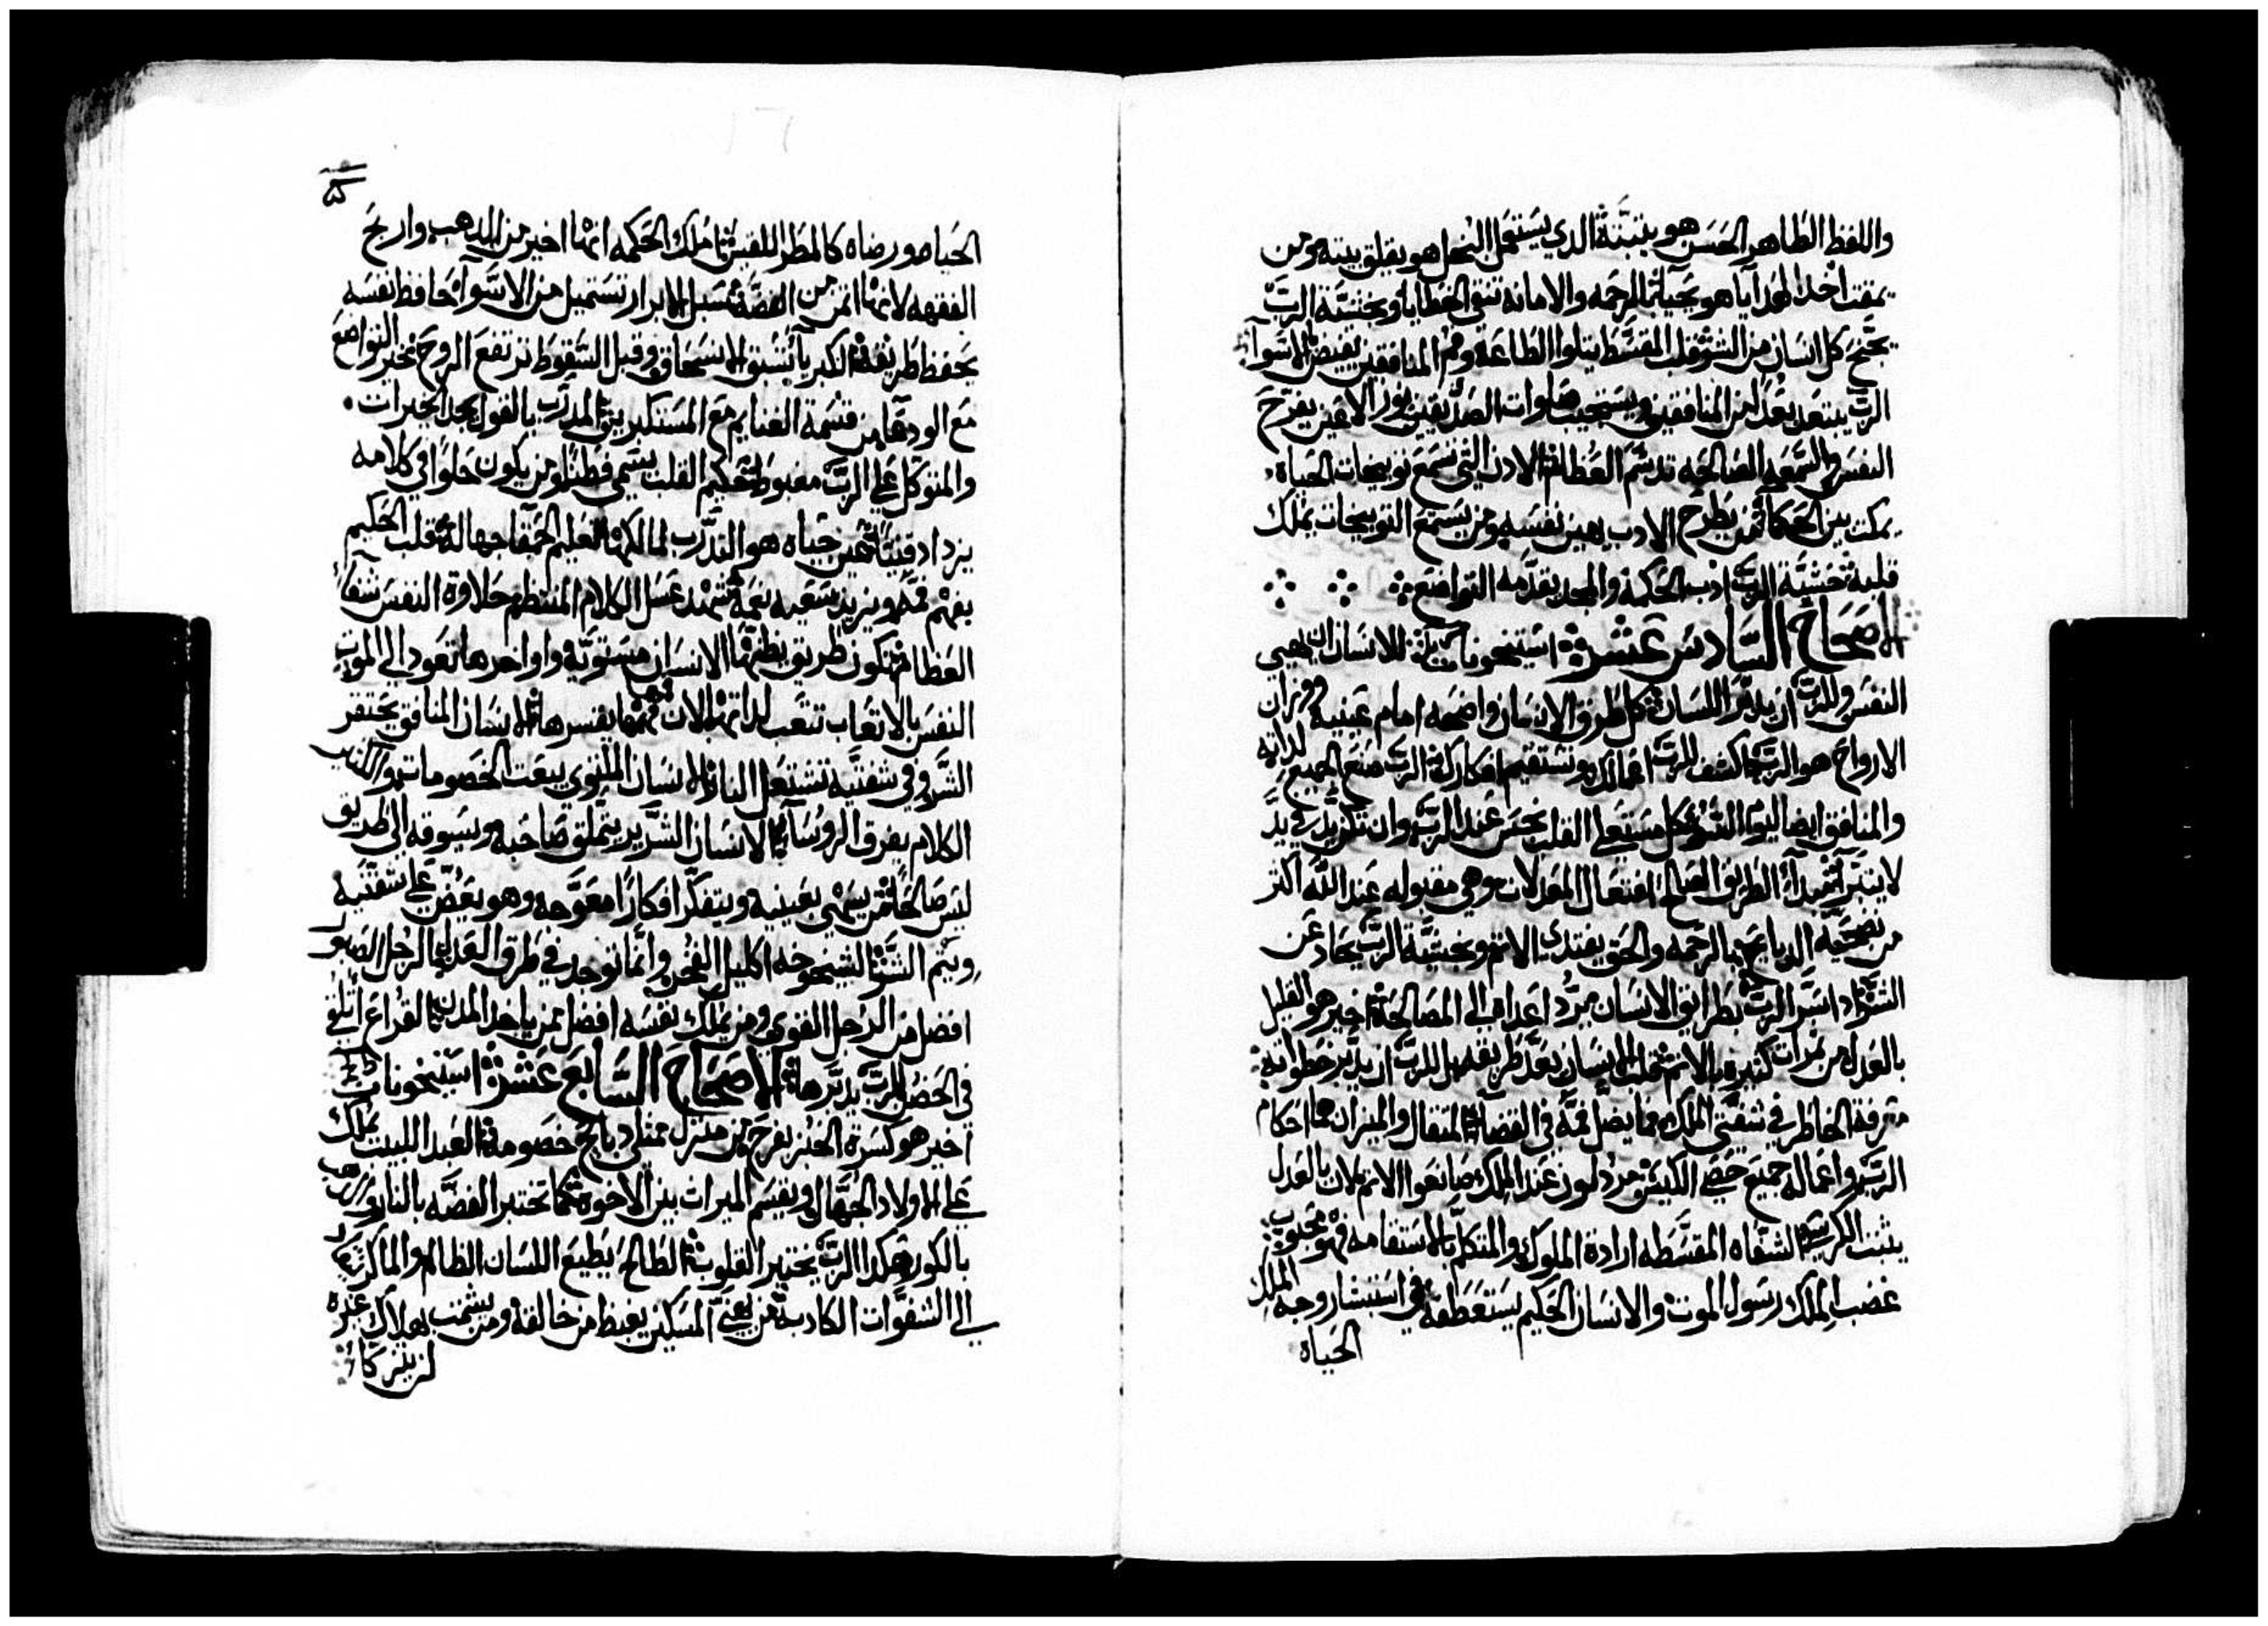 واللفظ الطاهر الحسن هو يثبته الدي يستعمل البخل هو يقلق بيته ومن
يمقت اخد الهدايا هو يحيا بالرحمه والامانه تنقي الخطايا وبخشية الرب
يجنح كل انسان من الشر قلب المقسط يتلوا الطاعة وفم المنافقين يفيض الاسوآ
الرب يبتعد بعدا من المنافقين ويستجيب صلوات الصديقين نور الاعين يفرح
النفس والسمعه الصالحه تدسم العظام الادن التي تسمع توبيخات الحياة
يمكث بين الحكمآ من يطرح الادب يهين نفسه ومن يستمع التوبيخات يملك
قلبه خشية الرب ادب الحكمة والمجد يقدمه التواضع
الاصحاح السادس عشر استيخونات للانسان ان يهيي
النفس وللرب ان يدبر اللسان كل طرق الانسان واضحه امام عينيه ووزان
الارواح هو الرب اكشف للرب اعمالك وتستقيم افكارك الرب صنع الجميع لداته
والمنافق ايضا ليوم الشر كل مستعلي القلب نجس عند الرب وان تكن يد في يد
لا يتبرا مبدأ الطريق الصالح افتعال العدلات وهي مقبوله عند الله اكثر
من تضحية الدبايح بالرحمه والحق يفتدى الاثم وبخشية الرب يحاد عن
الشر ادا سر الرب بطرايق الانسان يرد اعداه الى المصالحة اخير هو القليل
بالعدل من ثمرات كثيره بالاثم قلب الانسان يعد طريقه بل للرب ان يدبر خطواته
معرفة الخاطر في شفتي الملك فما يضل فمه في القضآ المثقال والميزان هما احكام
الرب واعماله جميع حصى الكيس مردولون عند الملك صانعوا الاثم لان بالعدل
يثبت الكرسي الشفاه المقسطه ارادة الملوك والمتكلم بالاستقامه فهو محبوب
غضب الملك رسول الموت والانسان الحكيم يستعطفه في استبشار وجه الملك
الحياة
الحياه ورضاه كالمطر اللقيس املك الحكمه انها اخير من الدهب واربح
الفقهه لانها اثمن من الفضة سبل الابرار تستميل من الاسوآ حافظ نفسه
يحفظ طريقه الكبريا تسبق الانسحاق وقبل السقوط ترتفع الروح خير التواضع
مع الودعا من قسمة الغنايم مع المستكبرين المدرب بالقول يجد الخيرات
والمتوكل على الرب مغبوط حكيم القلب يسمى فطنا ومن يكون حلوا في كلامه
يزداد قنيتا عين حياه هو التدرب لمالكه وتعليم الحمقا جهاله قلب الحكيم
يفهم فمه ويزيد شفتيه نعمة شهد عسل الكلام المنتظم حلاوة النفس شفآ
العظام تكون طريق يظنها الانسان مستويه واواخرها تعود الى الموت
النفس بالاتعاب تتعب لداتها لان فمها يقسرها الانسان المنافق يحتفر
الشر وفي شفتيه تشتعل النار الانسان الملتوي يبعت الخصومات والكتير
الكلام يفرق الروسآ الانسان الشرير يتملق صاحبه ويسوقه الى طريق
ليس صالحا من يسهي بعينيه ويتفكر افكارا معوجه وهو يعض على شفتيه
ويتم الشر الشيخوخه اكليل الفخر وانما توجد في طرق العدل الرجل الصبور
افضل من الرجل القوي ومن يملك نفسه افضل ممن ياخد المدن القراع تلقى
في الحضن والرب يدبرها الاصحاح السابع عشر استيخونات
اخير هو كسرة الخبز بفرح من منزل ممتلي دبايح خصومة العبد اللبيب يملك
على الاولاد الجهال ويقسم الميراث بين الاخوة كما تختبر الفضه بالنار والدهب
بالكور هكدا الرب يختبر القلوب الطالح يطيع اللسان الظالم والماكر
الى الشفوات الكادبة من يعير المسكين يغيظ من خالقه ومن يشمت بهلاك غيره
لن يتزكا